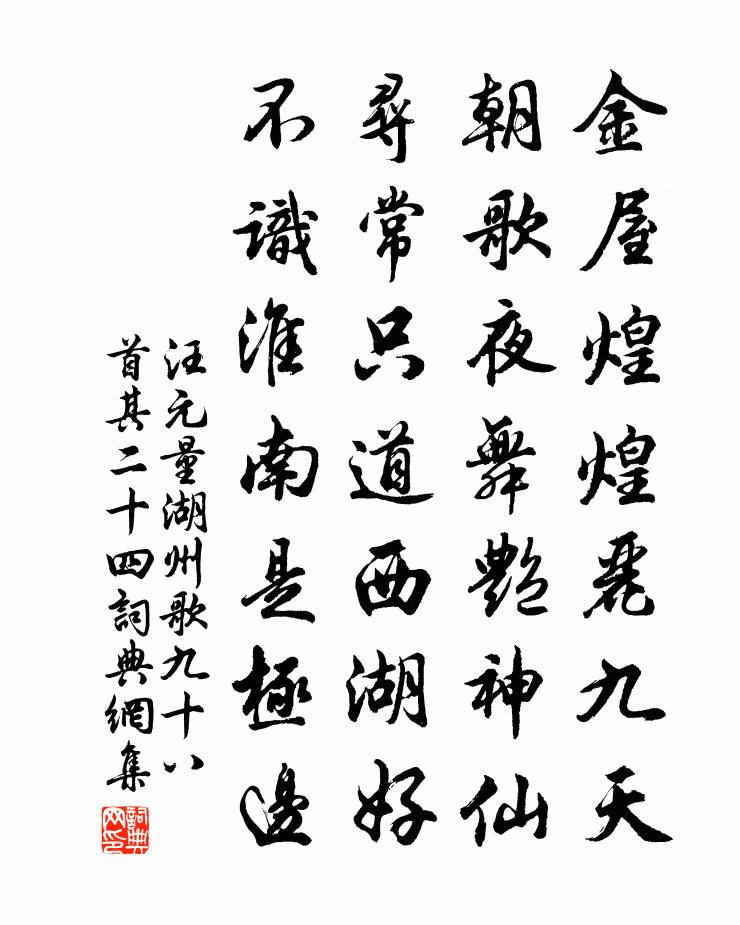 金屋煌煌麗九天
朝歌夜舞艷神仙
尋常只道西湖好
不識淮南是極邊
汪元量湖州歌九十八
首其二十四詞典網集
詞典
网印